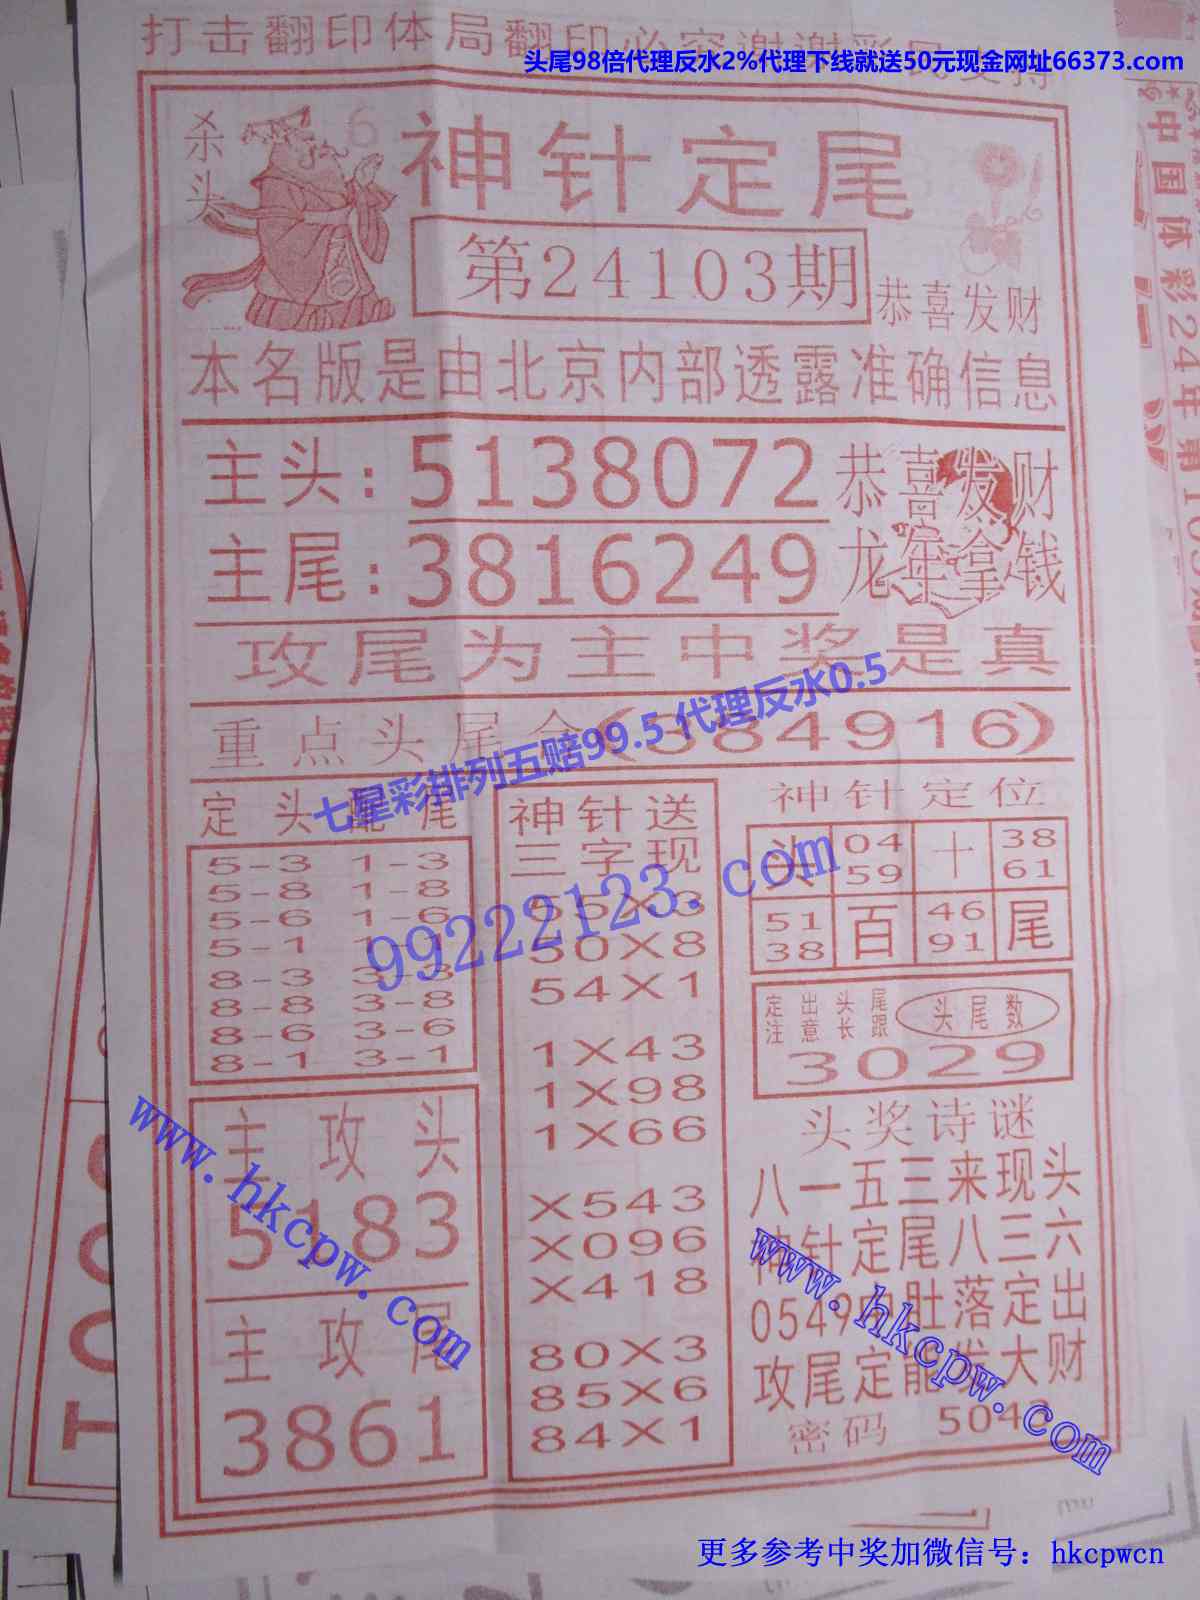 打击翻印体局翻印必究谢谢彩民支持
头尾98倍代理反水2%代理下线就送50元现金网址66373.com
杀头
6
神针定尾
第24103期
恭喜发财
本名版是由北京内部透露准确信息
主头:5138072
恭喜发财
主尾:3816249
龙年拿钱
攻尾为主中奖是真
重点头尾合(384916)
七星彩排列五赔99.5 代理反水0.5
定头配尾
5-3 1-3
5-8 1-8
5-6 1-6
5-1 1-1
8-3 3-3
8-8 3-8
8-6 3-6
8-1 3-1
神针送
三字现
55X3
50X8
54X1
1X43
1X98
1X66
X543
X096
X418
80X3
85X6
84X1
99222123.com
神针定位
头 04 59 十 38 61
51 38 百 46 91 尾
定出头尾
注意长跟
头尾数
3029
主攻头
5183
主攻尾
3861
头奖诗谜
八一五三来现头
神针定尾八三六
0549中肚落定出
攻尾定能发大财
密码 5043
www.hkcpw.com
www.hkcpw.com
中国体彩24年第
更多参考中奖加微信号：hkcpwcn